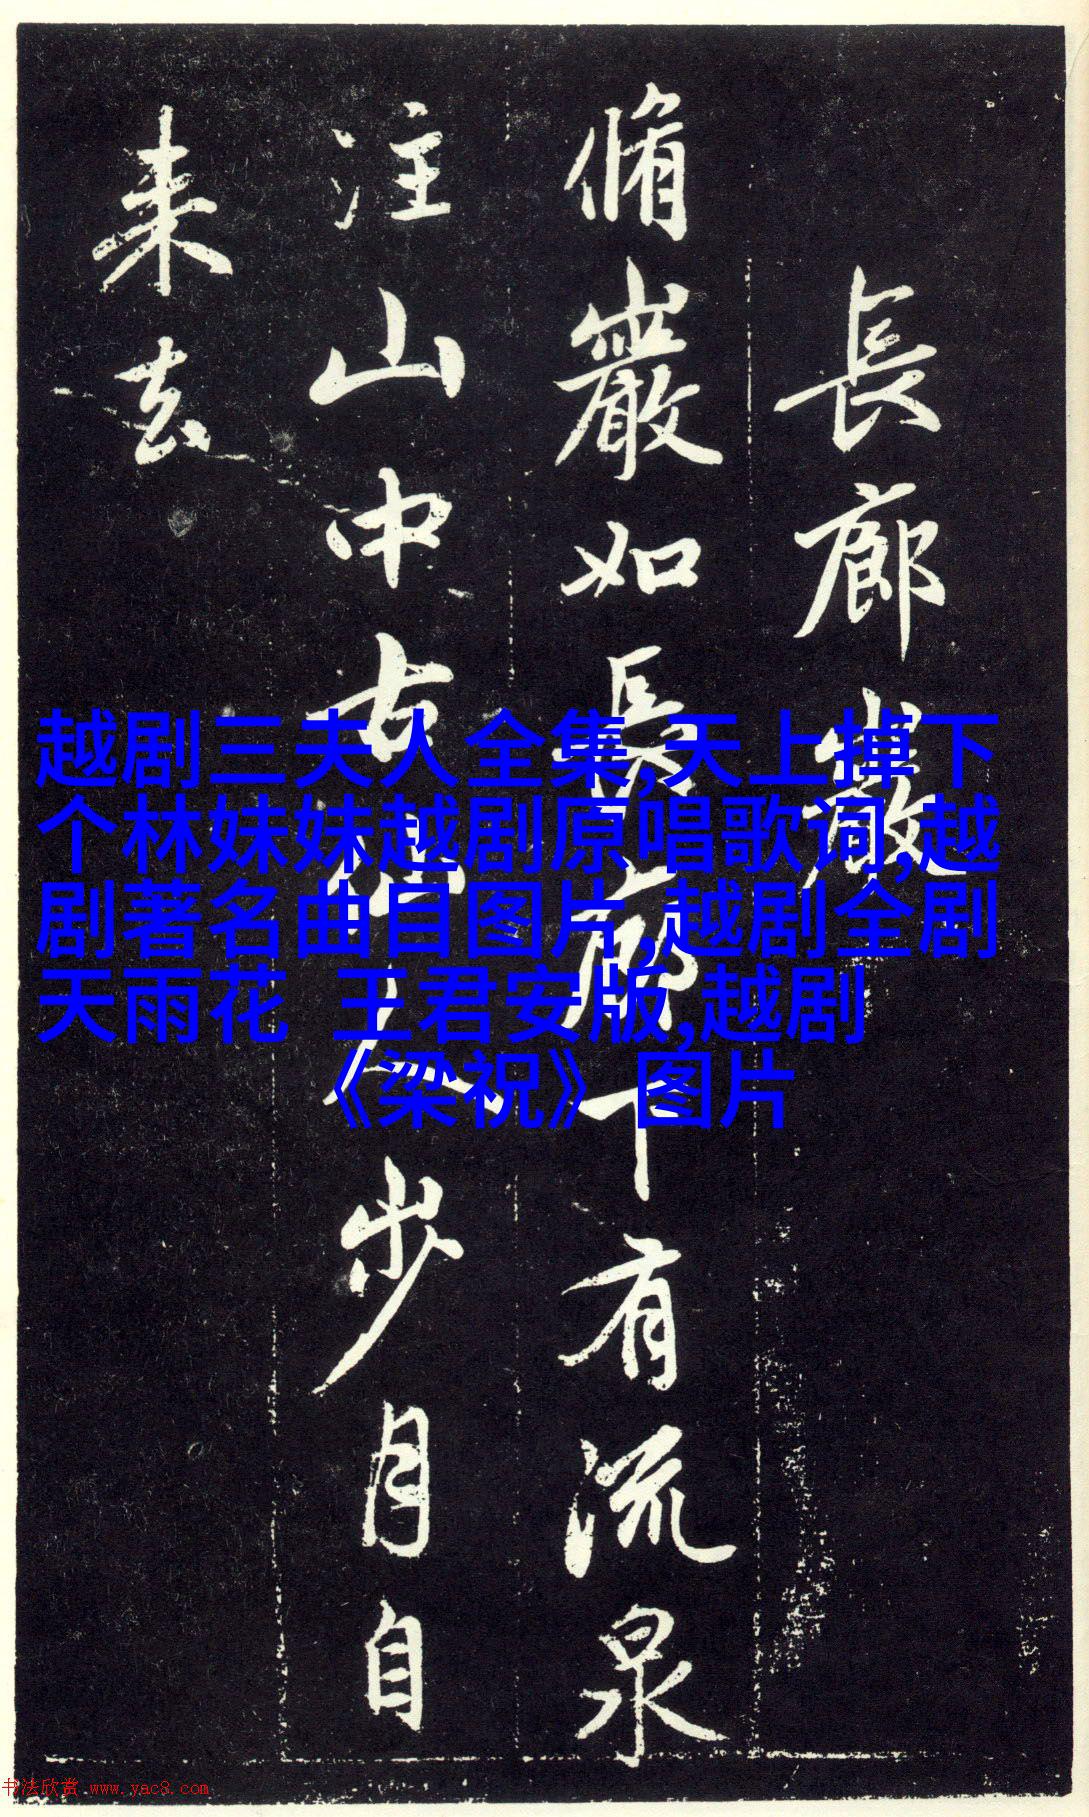 長廊巖
脩巖如長廊下有流泉
注山中古仙人步月自
来去
越剧三夫人全集,天上掉下
个林妹妹越剧原唱歌词,越
剧著名曲目图片,越剧全剧
天雨花 王君安版,越剧
《梁祝》图片
书法欣赏 www.yac8.com